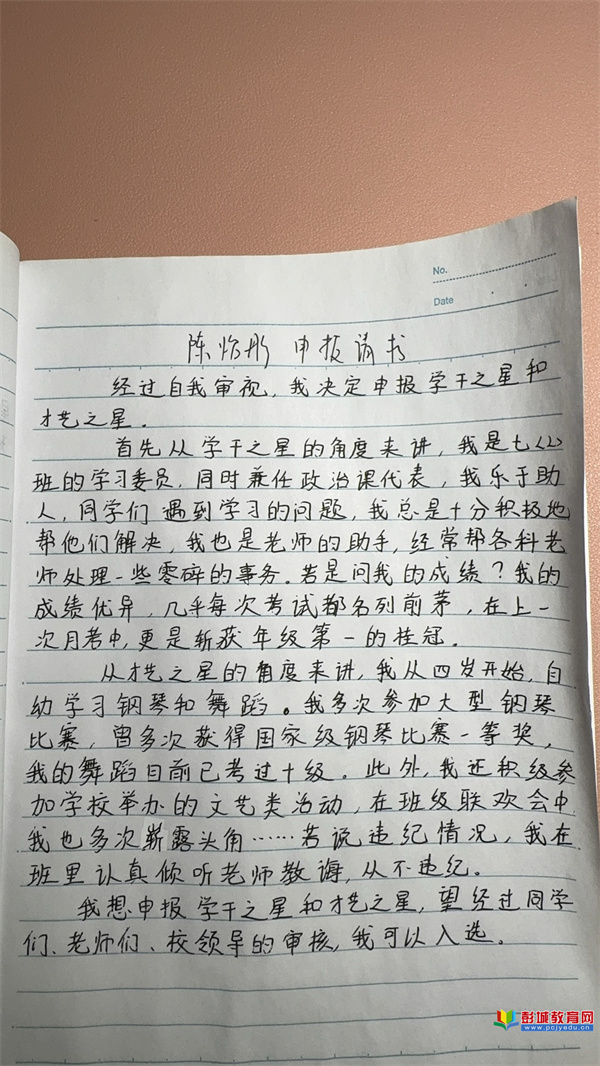 No.
Date
陈怡彤 申报请书
经过自我审视,我决定申报学干之星和
才艺之星.
首先从学干之星的角度来讲,我是七〈2〉
班的学习委员,同时兼任政治课代表,我乐于助
人,同学们遇到学习的问题,我总是十分积极地
帮他们解决,我也是老师的助手,经常帮各科老
师处理一些零碎的事务.若是问我的成绩?我的
成绩优异,几乎每次考试都名列前茅,在上一
次月考中,更是斩获年级第一的桂冠.
从才艺之星的角度来讲,我从四岁开始,自
幼学习钢琴和舞蹈。我多次参加大型钢琴
比赛,曾多次获得国家级钢琴比赛一等奖,
我的舞蹈目前已考过十级。此外,我还积极参
加学校举办的文艺类活动,在班级联欢会中
我也多次崭露头角……若说违纪情况,我在
班里认真倾听老师教诲,从不违纪。
我想申报学干之星和才艺之星,望经过同学
们、老师们、校领导的审核,我可以入选。
彭城教育网
www.pcjyedu.cn